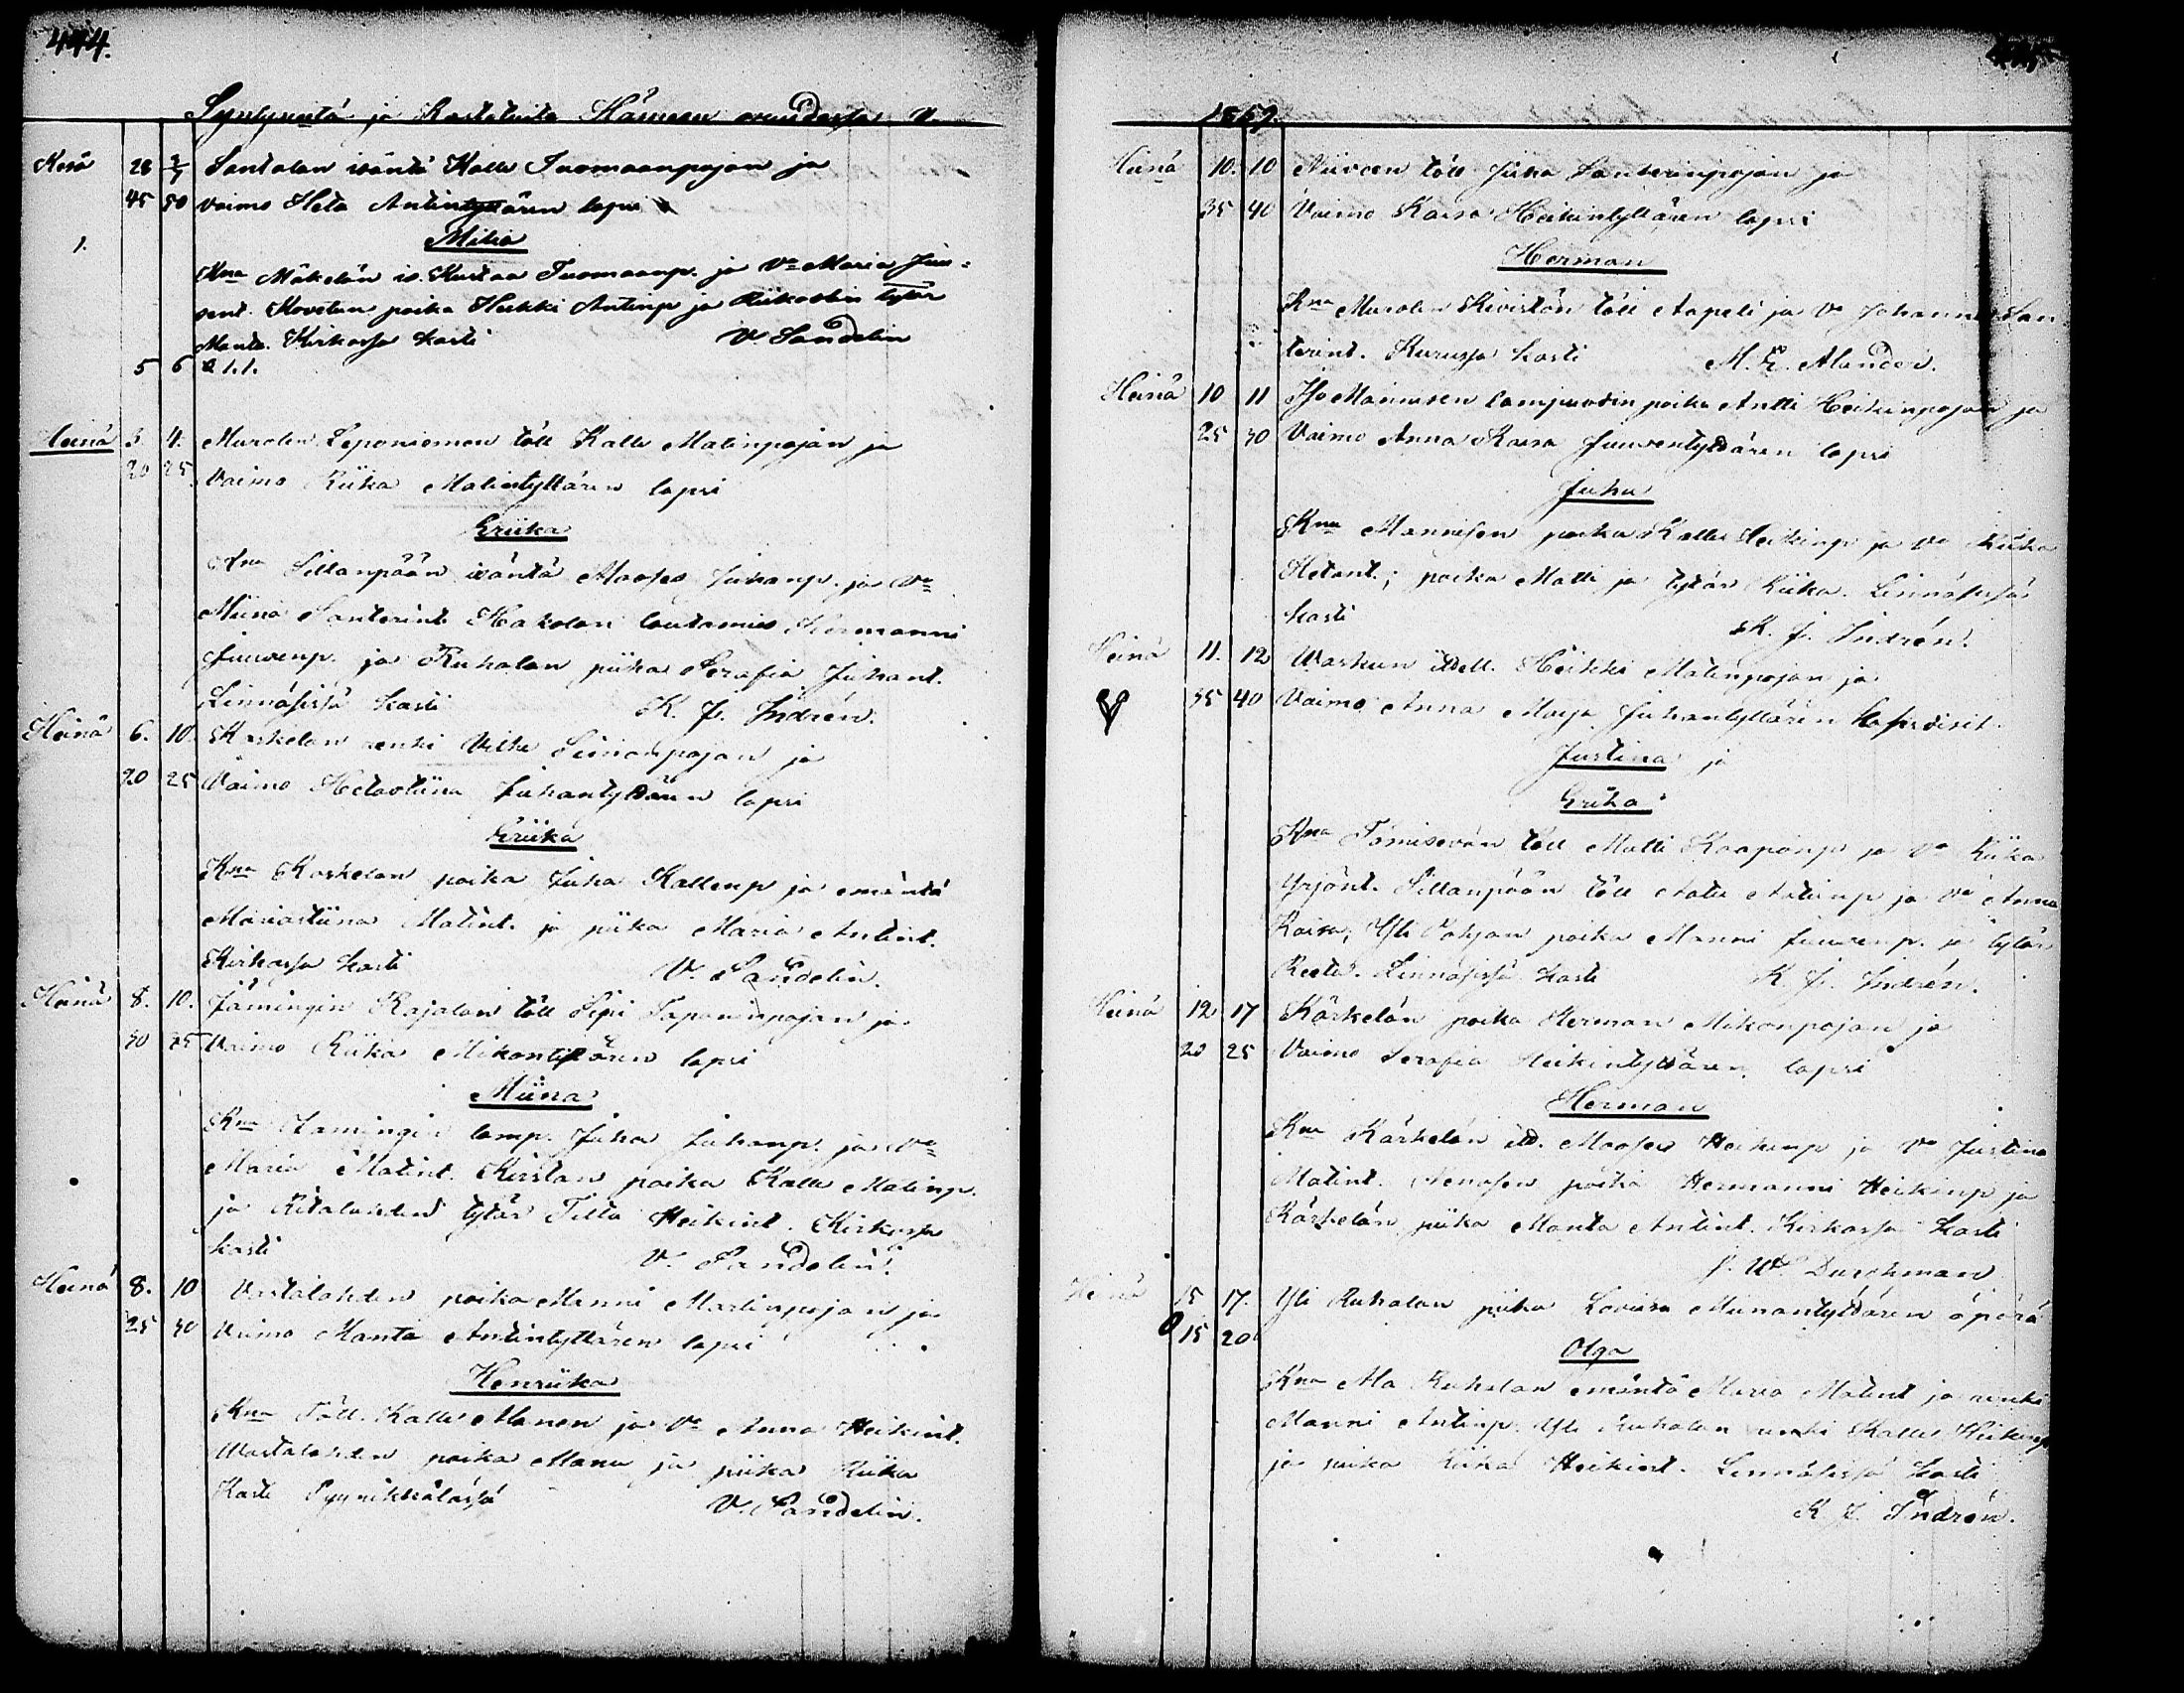 444.
Syntyneitä ja Kastetuita Kämeen vuodesta
Kesä 28 2/7 Santalan isäntä Kalle Tuomaanpojan ja
45 50 vaimo Heta Antintyttären lapsi
Milia
1.
Kna Mäkelän is. Kustaa Tuomaanp. ja Va Maria Juu-
sent. poika Heikki Antinp ja tytär
Manta. Kirkossa kasti V. Sandelin
5 6
Heinä 3. 4. Murolen Leponiemen töll Kalle Matinpojan ja
20 25. Vaimo Riika Matintyttären lapsi
Eriika
Kna Sillanpään isäntä Mooses Juhanp. ja Va
Miina Santerint. Hakolan lautamies Hermanni
Juuvenp. ja Ruhalan piika Serafia Juhant.
Linnäsissä kasti K. J. Indrén.
Heinä 6. 10. Koskelan renki Ville Simonpojan ja
20 25 Vaimo Hetastiina Juhantyttären lapsi
Eriika
Kna Koskelan poika Juha Kallenp ja emäntä
Mariastiina Matint. ja piika Maria Antint.
Kirkossa kasti V. Sandelin.
Heinä 8. 10. Jämingin Rajalan töll Sipi Tapaninpojan ja
30 35 Vaimo Riika Mikontytären lapsi
Miina
Kna Jämingin lamp. Juha Juhanp. ja Va
Maria Matint. Kirstan poika Kalle Matinp.
ja Ritalahden tytär Tilta Heikint. Kirkossa
kasti V. Sandelin.
Heinä 8. 10 Vastalahden poika Manni Martinpojan ja
25 30 Vaimo Manta Antintyttären lapsi
Henriika
Kna Töll. Kalle Manen ja Va Anna Heikint.
Wastalahden poika Manu ja piika Riika
Kasti V. Sandelin.
1859.
Heinä 10. 10 töll Juha Santerinpojan ja
35 40 Vaimo Kaisa Heikintyttären lapsi
Herman
Kna Murolen Kivistön töll Aapeli ja Va Johanna San
terint. Kurussa kasti M. E. Alander.
Heinä 10 11 Iso Mannisen lampuodin poika Antti Heikinpojan ja
25 30 Vaimo Anna Kaisa Juuventyttären lapsi
Juha
Kna Mannisen poika Kalle Heikinp ja Va Riika
Hetant.; poika Matti ja tytär Riika. Linnäsissä
kasti K. J. Indrén.
Heinä 11. 12 Waskun itdell. Heikki Matinpojan ja
35 40 Vaimo Anna Maija Juhantyttären kaksoiset.
Justina ja
Eriika
Kna Tömisevän töll Matti Kaaponp ja Va Riika
Yrjönt. Sillanpään töll Aatu Antinp ja Va Anna
Kaisa; Yli Pohjan poika Manni Juuvenp. ja tytär
Reeta. Linnäsissä kasti K. J. Indrén.
Heinä 12 17 Kärkelän poika Herman Mikonpojan ja
20 25 Vaimo Serafia Heikintyttären lapsi
Herman
Kna Kärkelän itd. Mooses Heikinp ja Va Justina
Matint. Nenosen poika Hermanni Heikinp ja
Kärkelän piika Manta Antint. Kirkossa kasti
J. W. Durchman
Heinä 15 17. Yli Ruhalan piika Loviisa Manantyttären äpärä
15 20
Olga
Kna Ala Ruhalan emäntä Maria Matint ja renki
Manni Antinp. Yli Ruhalan renki Kalle Heikinp
ja piika Riika Heikint. Linnäsissä kasti
K. J. Indrén.